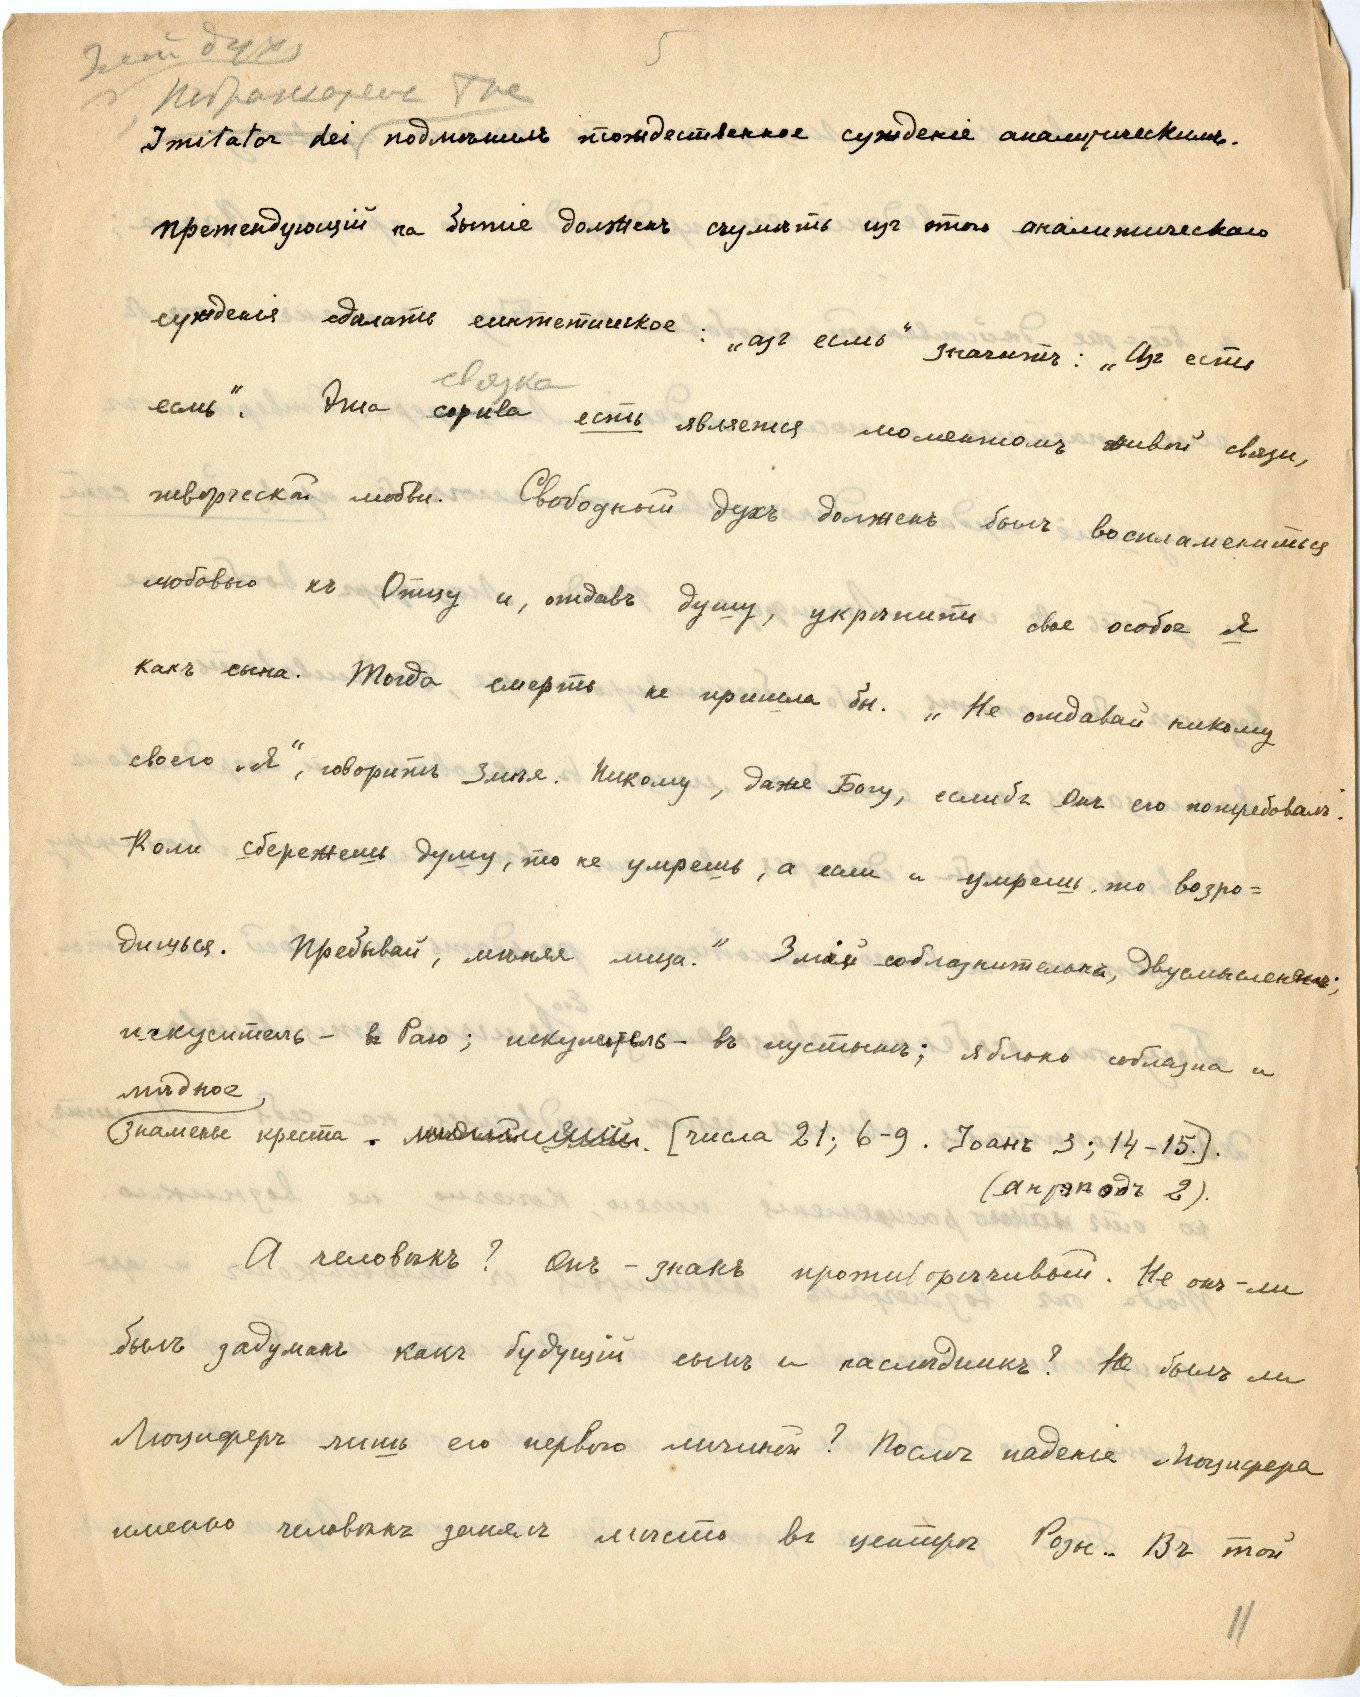 5
Imitator dei подмѣнилъ тождественное сужденіе аналитическимъ.
претендующій на бытіе долженъ съумѣть изъ этого аналитическаго
сужденія сдѣлать синтетическое: „азъ есмь“ значитъ: „Аз есть
связка
есмь“. Эта есть является моментомъ живой связи,
творческой любви. Свободный духъ долженъ былъ воспламениться
любовью къ Отцу и, отдавъ душу, укрѣпить свое особое Я
какъ сына. Тогда смерть не пришла бы. „Не отдавай никому
своего „Я“, говоритъ Змѣя. Никому, даже Богу, еслибъ Онъ его потребовалъ.
Коли сбережешь душу, то не умрешь, а если и умрешь, то возро=
дишься. Пребывай, мѣняя лица.“ Змій соблазнителенъ, двусмысленъ;
искуситель – въ Раю; искупитель – въ пустынѣ; яблоко соблазна и
мѣдное
знаменье креста. [числа 21; 6-9. Іоанъ 3; 14-15.].
(Ануводъ 2).
А человѣкъ? Онъ – знакъ противорѣчивый. Не онъ-ли
былъ задуманъ какъ будущій сынъ и наслѣдникъ? Не былъ ли
Люциферъ лишь его первой личиной? Послѣ паденіе Люцифера
именно человѣкъ занялъ мѣсто въ центрѣ Розы.. Въ той
11